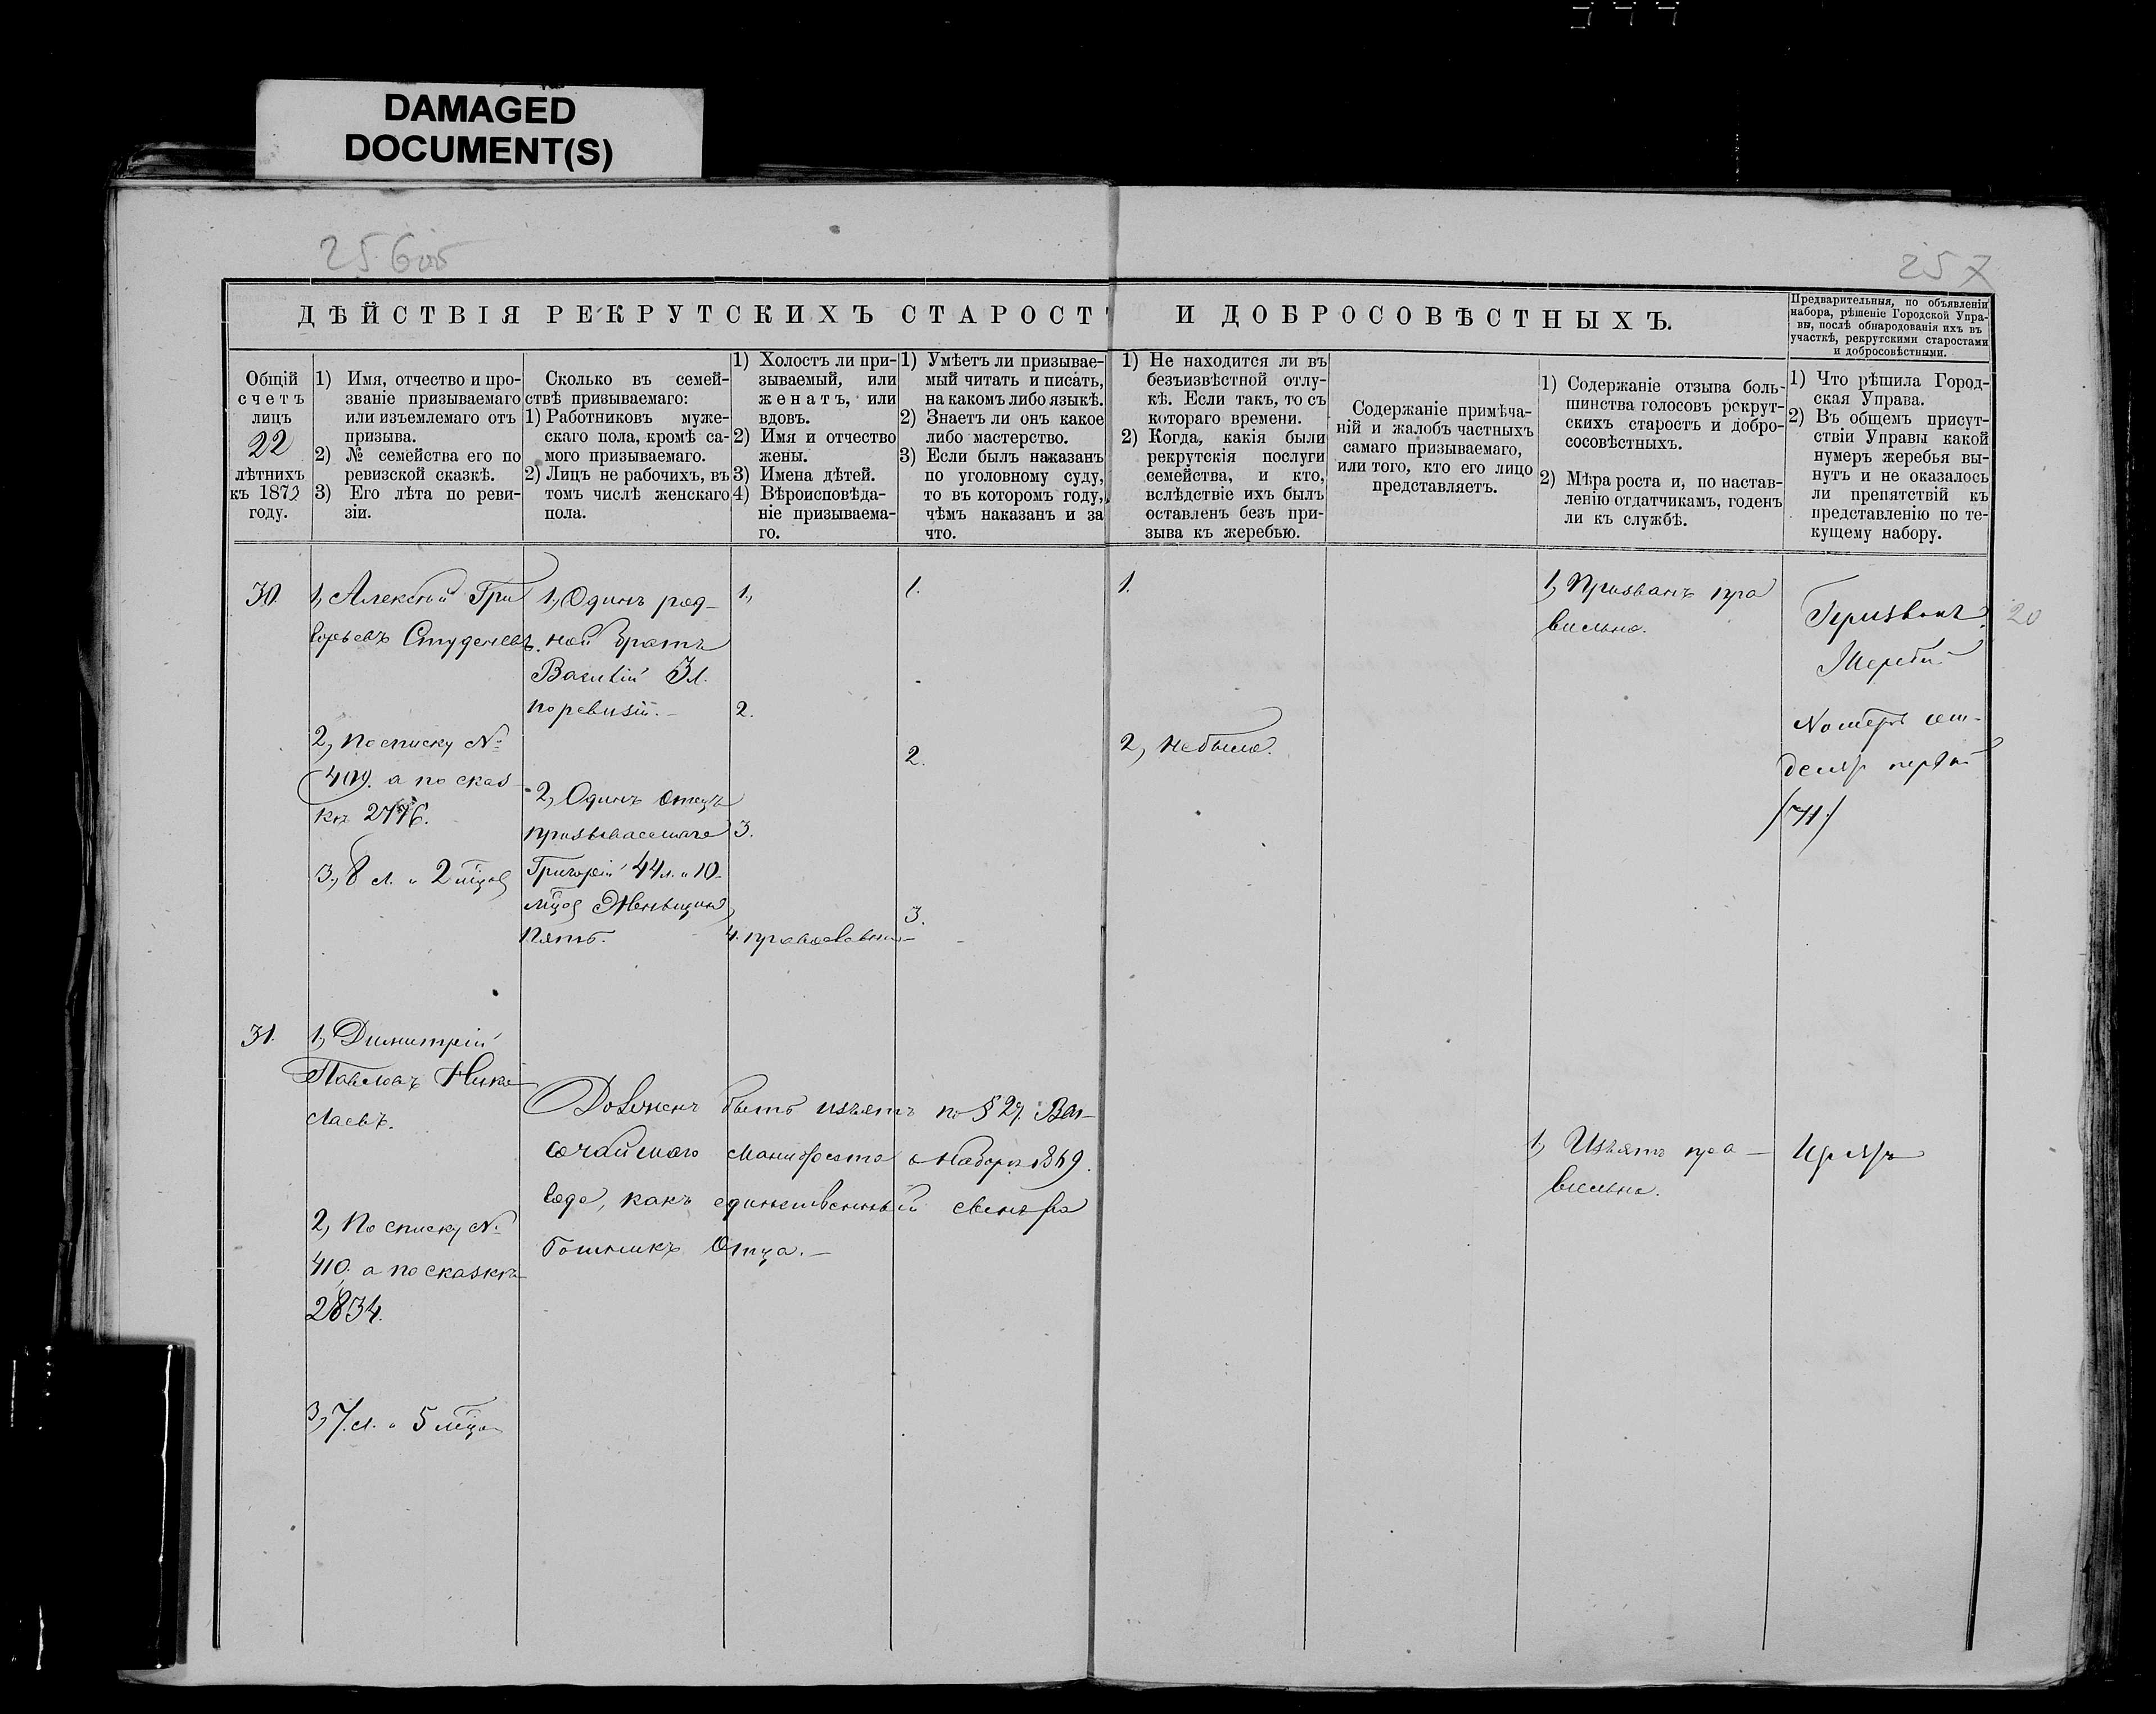 DAMAGED
DOCUMENT(S)
256об
257
ДѢЙСТВІЯ РЕКРУТСКИХЪ СТАРОСТЪ И ДОБРОСОВѢСТНЫХЪ.
Предварительныя, по объявленіи
набора, рѣшеніе Городской Упра-
вы, послѣ обнародованія ихъ въ
участкѣ, рекрутскими старостами
и добросовѣстными.
Общій
счетъ
лицъ
22
лѣтнихъ
къ 1872
году.
1) Имя, отчество и про-
званіе призываемаго
или изъемлемаго отъ
призыва.
2) № семейства его по
ревизской сказкѣ.
3) Его лѣта по реви-
зіи.
Сколько въ семей-
ствѣ призываемаго:
1) Работниковъ муже-
скаго пола, кромѣ са-
мого призываемаго.
2) Лицъ не рабочихъ, въ
томъ числѣ женскаго
пола.
1) Холостъ ли при-
зываемый, или
женатъ, или
вдовъ.
2) Имя и отчество
жены.
3) Имена дѣтей.
4) Вѣроисповѣда-
ніе призываема-
го.
1) Умѣетъ ли призывае-
мый читать и писать,
на какомъ либо языкѣ.
2) Знаетъ ли онъ какое
либо мастерство.
3) Если былъ наказанъ
по уголовному суду,
то въ которомъ году,
чѣмъ наказанъ и за
что.
1) Не находится ли въ
безъизвѣстной отлу-
кѣ. Если такъ, то съ
котораго времени.
2) Когда, какія были
рекрутскія послуги
семейства, и кто,
вслѣдствіе ихъ былъ
оставленъ безъ при-
зыва къ жеребью.
Содержаніе примѣча-
ній и жалобъ частныхъ
самаго призываемаго,
или того, кто его лицо
представляетъ.
1) Содержаніе отзыва боль-
шинства голосовъ рекрут-
скихъ старостъ и добро-
сосовѣстныхъ.
2) Мѣра роста и, по настав-
ленію отдатчикамъ, годенъ
ли къ службѣ.
1) Что рѣшила Город-
ская Управа.
2) Въ общемъ присут-
ствіи Управы какой
нумеръ жеребья вы-
нутъ и не оказалось
ли препятствій къ
представленію по те-
кущему набору.
30.
1, Алексѣй Гри
горьевъ Студенцевъ.
2, по списку №
409. а по сказ
кѣ 2776.
3, 8 л. и 2 мѣцов
1, Одинъ род-
ной братъ
Василій 3 л.
по ревизіи.-
2, Одинъ отецъ
призываемаго
Григорій 44 л. и 10
мѣцов Женьщинъ
пять.
1.,
2.
3.
4. православный
1.
2.
3.
1.
2, Небыло.
1, Призванъ пра
вильно.
Призвать.
Жеребій
Номеръ сем-
десятъ первый
/71/
20
31.
1, Димитрій
Павловъ Нико
лаевъ.
2, По списку №
410. а по сказкѣ
2834.
3, 7 л. и 5 мѣцов
Долженъ быть изъятъ по § 29. Вы-
сочайшаго Манифеста о наборѣ 1869.
года, какъ единственный сынъ ра
ботникъ Отца.-
1, Изъятъ пра-
вильно.
Изъять